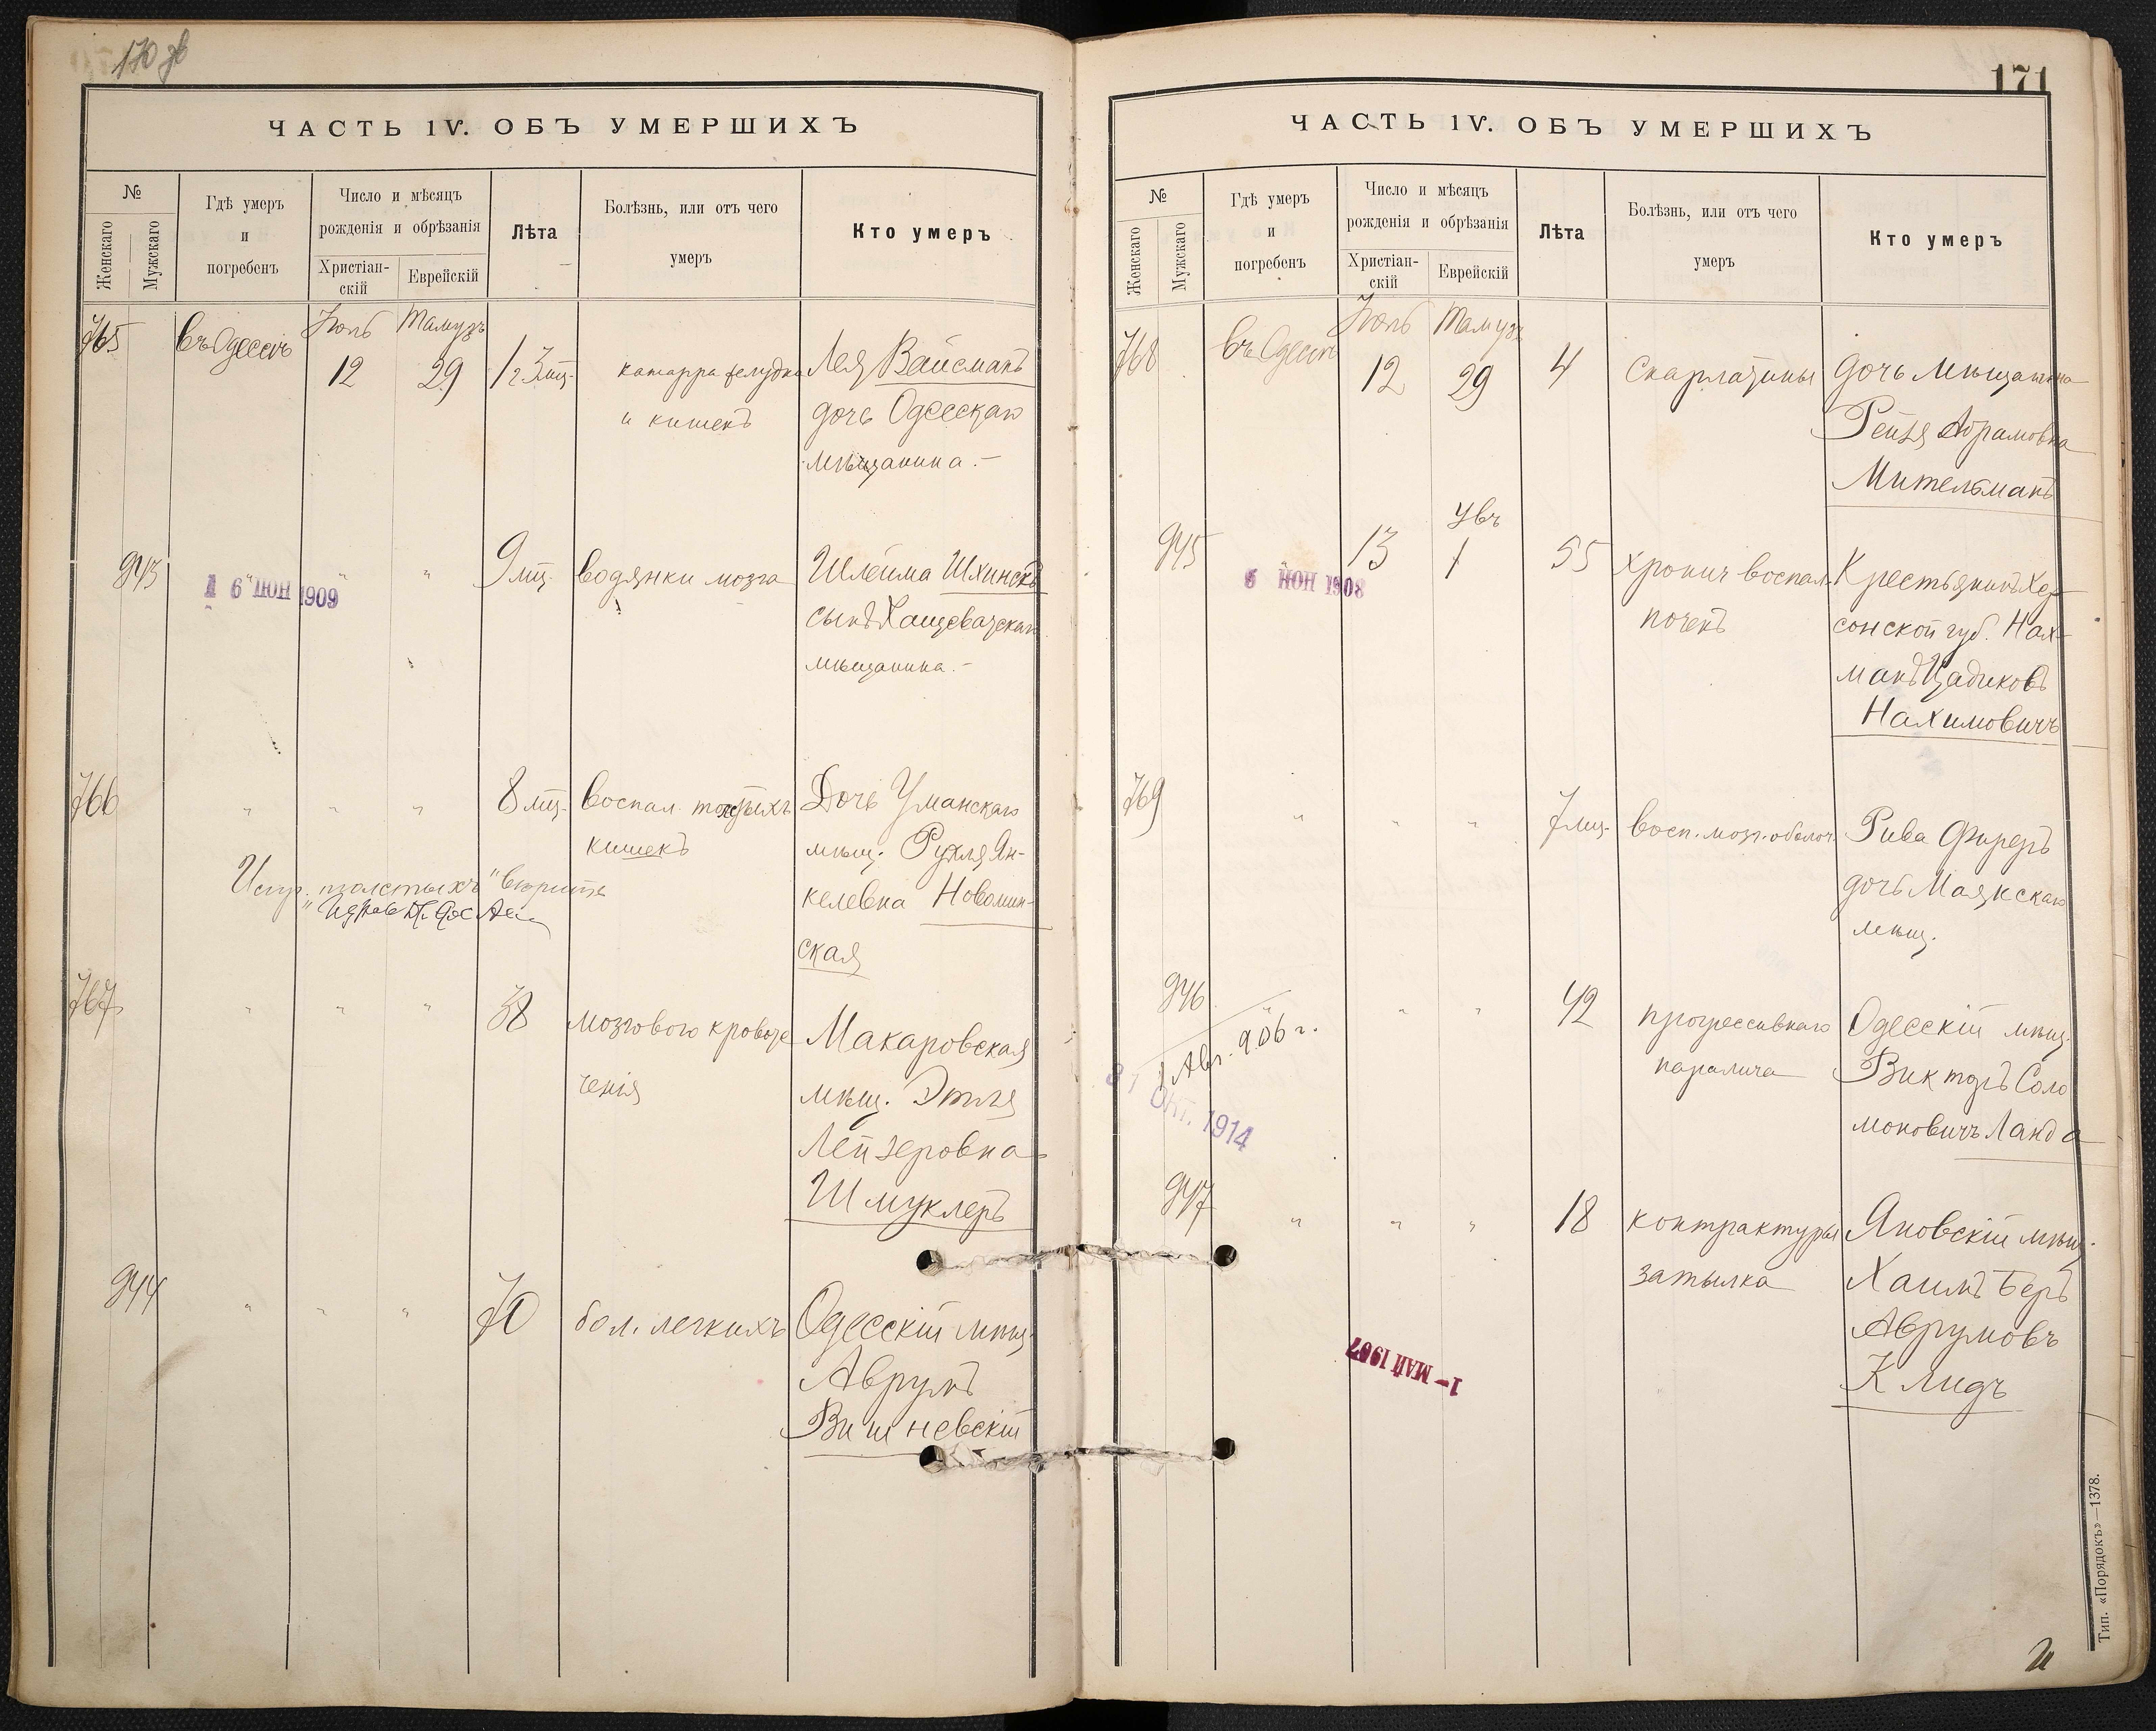 170 об
ЧАСТЬ IV. ОБЪ УМЕРШИХЪ
№
Женскаго
Мужскаго
Гдѣ умеръ
и
погребенъ
Число и мѣсяцъ
рожденія и обрѣзанія
Христіан-
скій
Еврейскій
Лѣта
Болѣзнь, или отъ чего
умеръ
Кто умеръ
765
въ Одессѣ
Іюль
Тамузъ
12
29
катарра желудка
и кишекъ
Лея Вайсманъ
дочь Одесскаго
мѣщанина.-
943
6 ІЮН 1909
"
9 мц.
водянки мозга
Шлейма
сынъ Хащеватскаго
мѣщанина.-
766
" " "
8 мц.
воспал. толстыхъ
кишекъ
Дочь Уманскаго
мѣщ. Рухля Ян-
келевна Новомин-
ская
толстыхъ" вѣрить
767
" " "
38
мозгового кровоте
ченія
Макаровская
мѣщ. Этля
Лейзеровна
Шмуклеръ
944
" " "
70
бол. легкихъ
Одесскій мѣщ.
Аврумъ
Вишневскій
171
ЧАСТЬ IV. ОБЪ УМЕРШИХЪ
№
Женскаго
Мужскаго
Гдѣ умеръ
и
погребенъ
Число и мѣсяцъ
рожденія и обрѣзанія
Христіан-
скій
Еврейскій
Лѣта
Болѣзнь, или отъ чего
умеръ
Кто умеръ
768
въ Одессѣ
Іюль
Тамузъ
12
29
4
Скарлатины
Дочь мѣщанина
Рейзя Абрамовна
Мительманъ
945
6 ІЮН 1908
13
1
55
хронич воспал.
почекъ
Крестьянинъ Хер-
сонской губ. Нах-
манъ Цадиковъ
Нахимовичъ
769
" " "
7 мц.
восп. мозг. оболоч.
Рива Фиреръ
дочь Маякскаго
мѣщ.
946
1 Авг. 906 г.
31 ОКТ. 1914
" "
42
прогрессивнаго
паралича
Одесскій мѣщ.
Викторъ Соло
моновичъ Ланда
947
" " "
18
контрактуры
затылка
Яновскій мѣщ.
Хаимъ Беръ
Аврумовъ
Клидъ
1- МАЙ 1907
Тип. «Порядокъ»—1378.